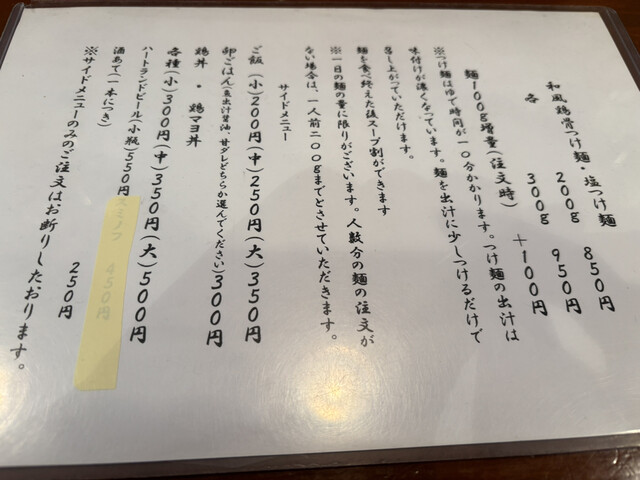 和風鶏骨つけ麺・塩つけ麺
200g 850円
各 300g 950円
麺100g増量(注文時) +100円
※つけ麺はゆで時間が一〇分かかります。つけ麺の出汁は
味付けが濃くなっています。麺を出汁に少しつけるだけで
召し上がっていただけます。
麺を食べ終えた後スープ割ができます
※一日の麺の量に限りがございます。人数分の麺の注文が
ない場合は、一人前二〇〇gまでとさせていただきます。
サイドメニュー
ご飯(小)200円(中)250円(大)350円
卵ごはん(魚出汁醤油、甘ダレどちらか選んでください)300円
鶏丼・鶏マヨ丼
各種(小)300円(中)350円(大)500円
ハートランドビール(小瓶)550円
スミノフ 450円
酒あて(一本につき) 250円
※サイドメニューのみのご注文はお断りしております。